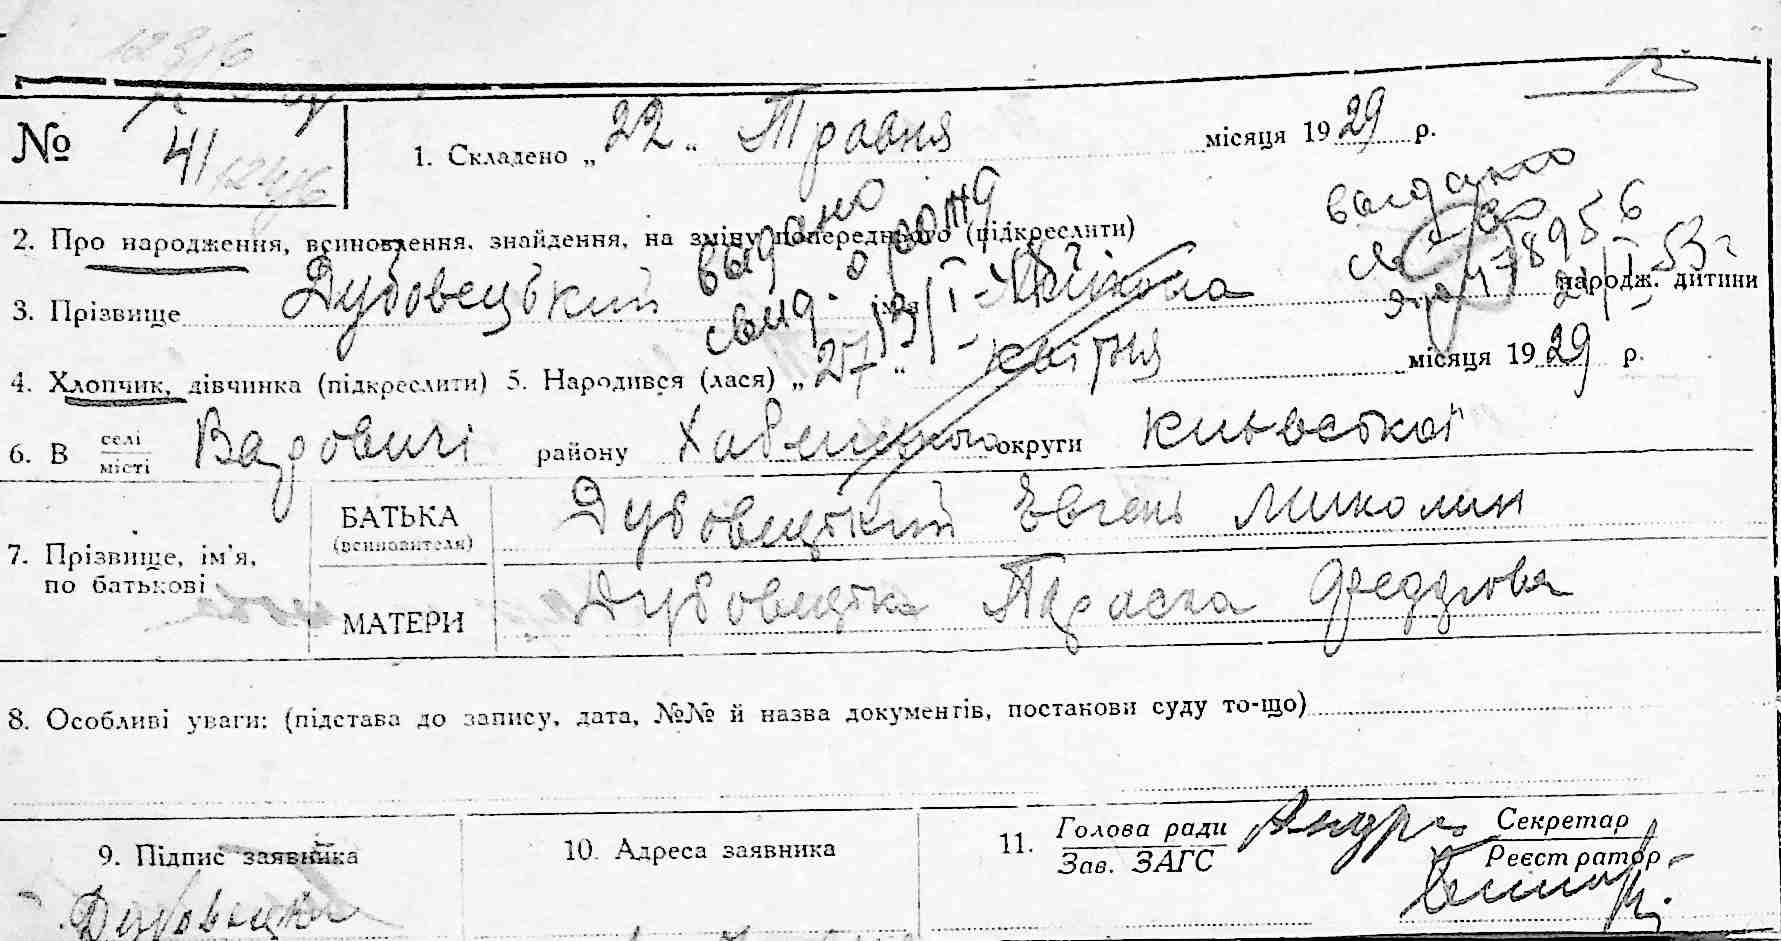 № 41
1. Складено „ 22 " Травня місяця 1929 р.
2. Про народження, всиновлення, знайдення, на зміну попереднього (підкреслити)
видано
видано
3. Прізвище Дубовецький ім'я Микола народж. дитини
4. Хлопчик, дівчинка (підкреслити) 5. Народився (лася) „ 27 " квітня місяця 1929 р.
6. В селі/місті Вадовичі району Хабенського округи Київської
7. Прізвище, ім'я, по батькові
БАТЬКА (всиновителя) Дубовецький Евгень Миколин
МАТЕРИ Дубовецька Параска Федорова
8. Особливі уваги: (підстава до запису, дата, №№ й назва документів, постанови суду то-що)
9. Підпис заявника
10. Адреса заявника
11. Голова ради
Зав. ЗАГС
Секретар
Реєстратор